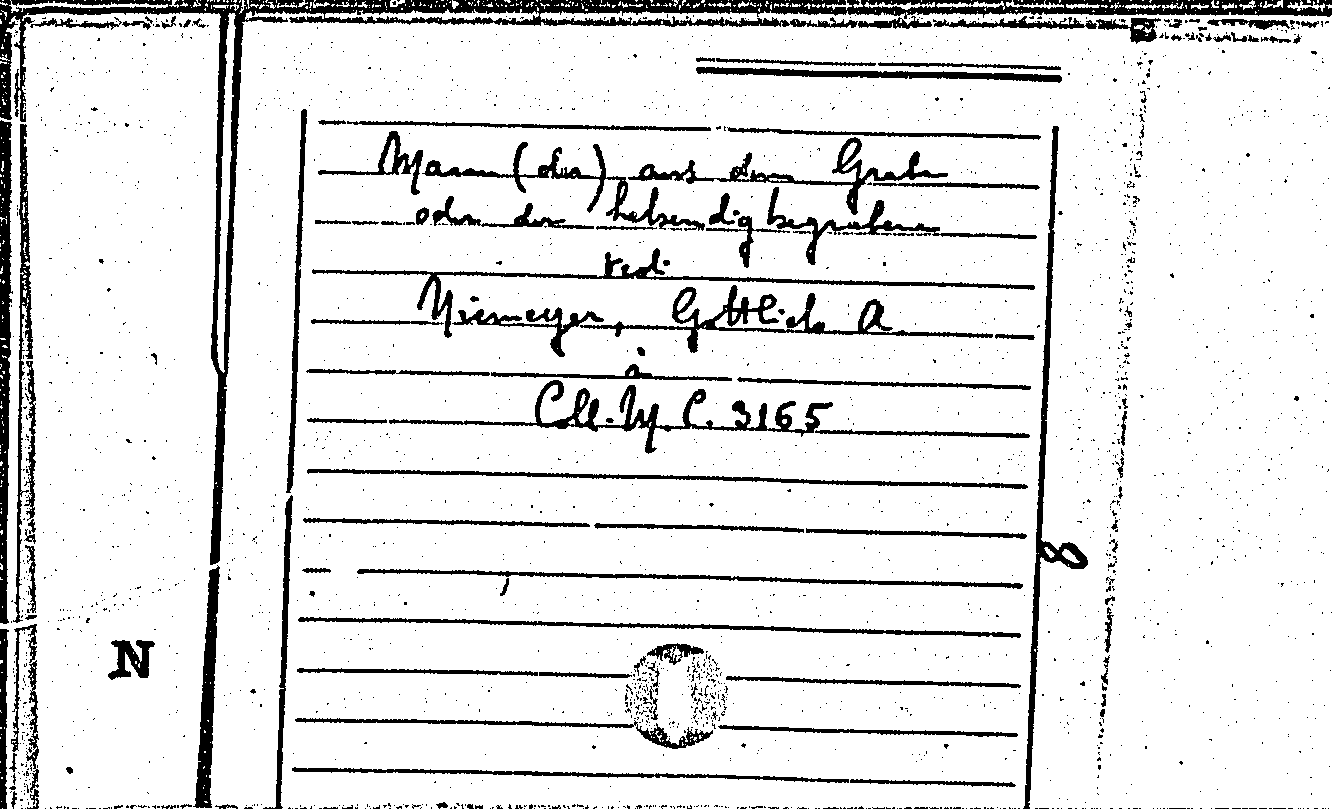 Mann (der) aus dem Grabe
oder der lebendig begrabene
vedi
Niemeyer, Gottlieb A.
in
Coll. M. C. 3165
8
N